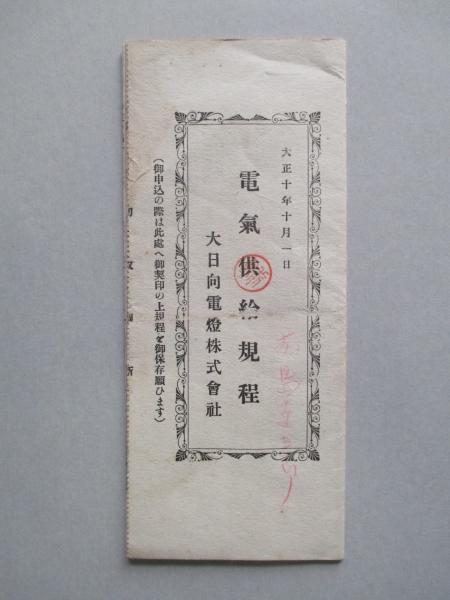 大正十年十月一日
電氣供給規程
大日向電燈株式會社
(御申込の際は此處へ御契印の上規程を御保存願ひます)